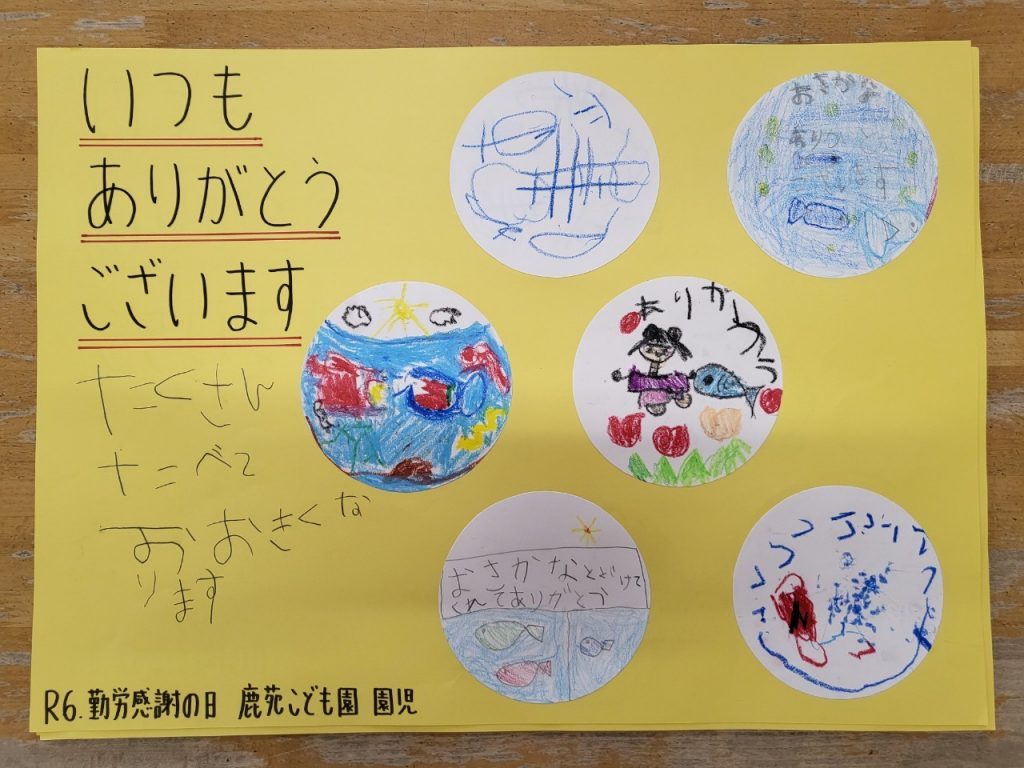 いつも
ありがとう
ございます
たくさん
たべて
おおきくな
ります
おさかな
ありがとう
おさかなとどけて
くれてありがとう
R6.勤労感謝の日 鹿苑こども園 園児